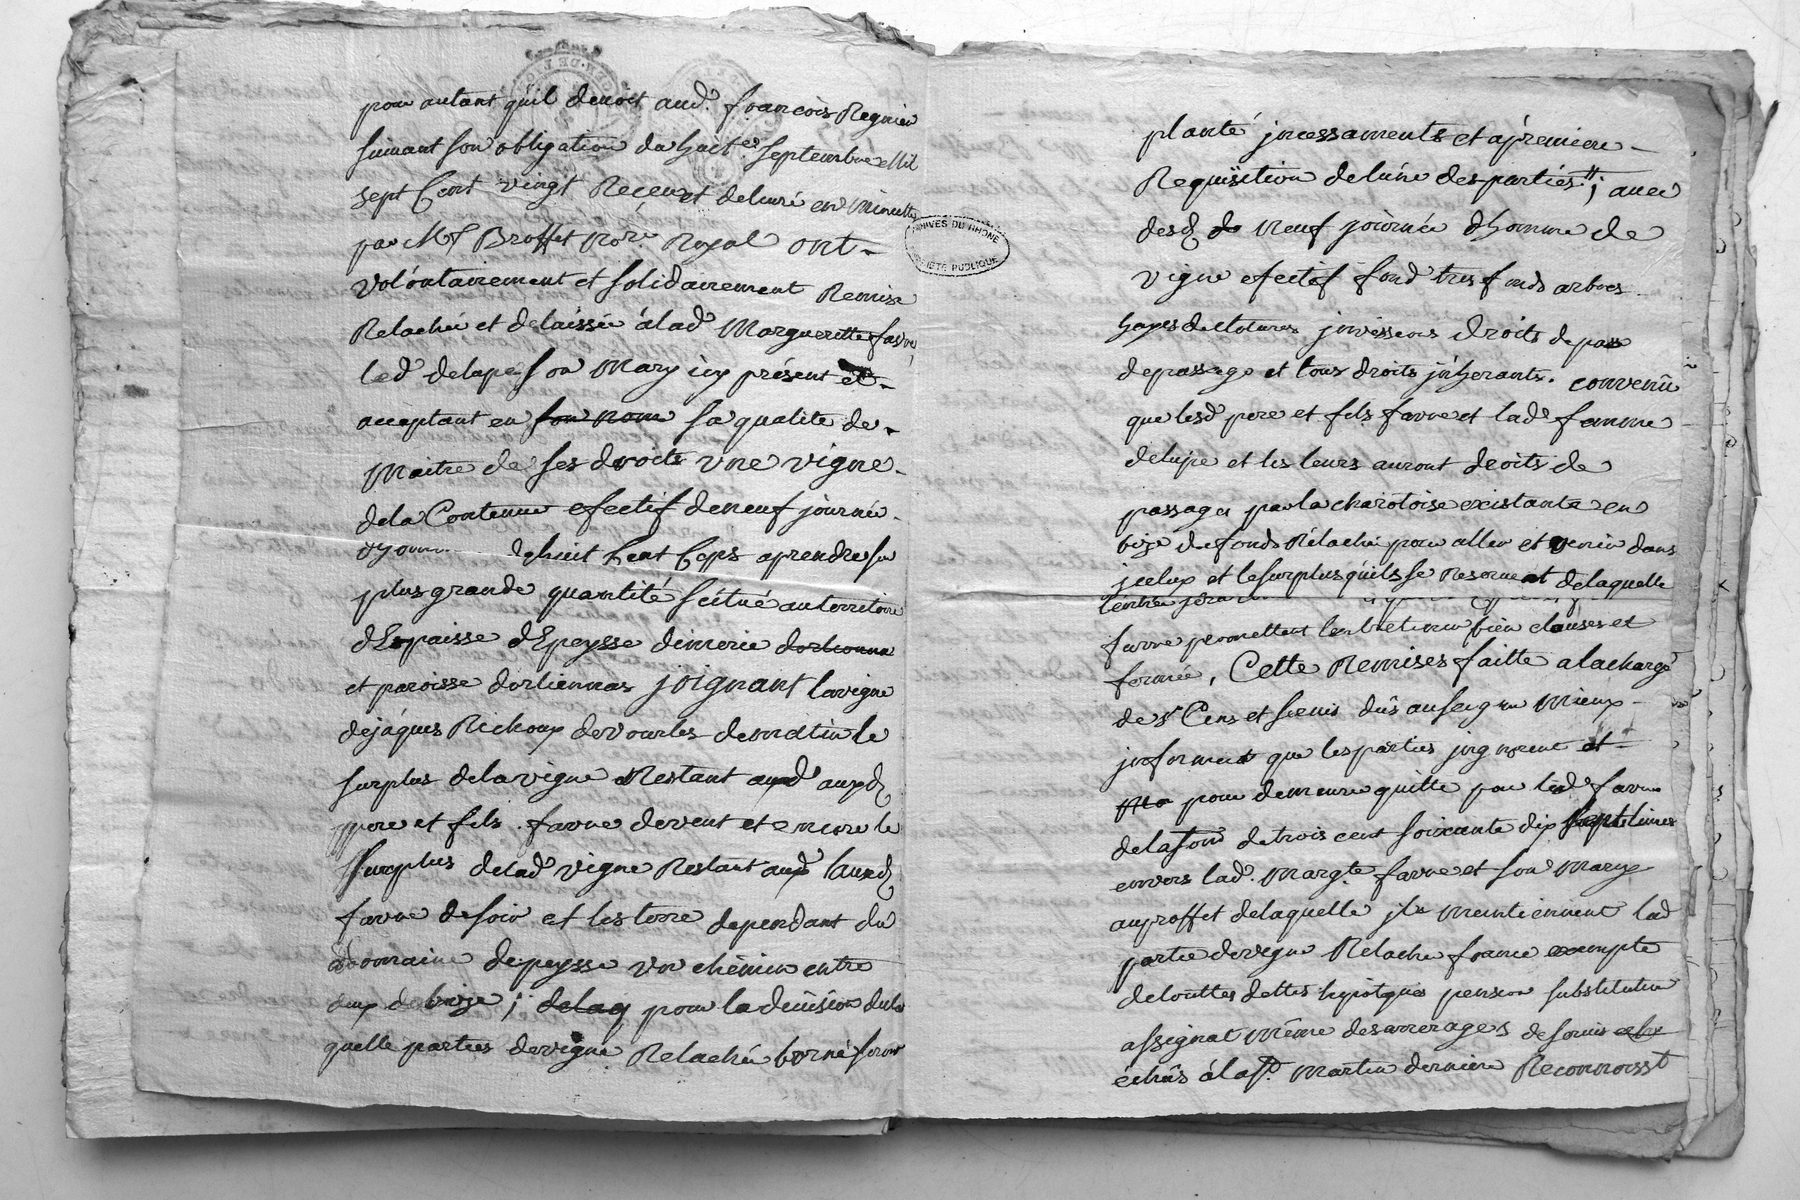 pour autant qu'il devoit aud. francois Regnier
suivant son obligation du huit.e septembre Mil
sept Cent vingt Receu et delivré en Minutte
par Me Broffet Nore Royal ont
volóntairement et solidairement Remise
Relachée et delaissée á lad. Marguerite favre
led. delupé son Mary icy présent et
acceptant en son nom sa qualité de
Maitre de ses droits une vigne
de la Contenue efectif de neuf journée
d'homme huit Cent Ceps a prendre sur
plus grande quantité scitué au territoire
d'Epaisse d'Epeysse dimerie dorlienna
et paroisse dorliennas joignant la vigne
de jáques Richoux de vourles de matin le
surplus de la vigne Restant aud. auxd.
pere et fils favre de vent et encore le
surplus de lad. vigne Restant auxd.
favre de soir et les terre dependant du
domaine d'epeysse un chemin entre
deux de bize ; delaq pour la division de la
quelle parties de vigne Relachée borne seront
planté incessaments et a premiere
Requisition de lune des parties ; avec
desd. de neuf journée d'homme de
vigne efectif fond tres fonds arbres
hayes de clotures invissons droits de pas
de passage et tous droits inhérants. convenû
que lesd. pere et fils favre et lad. femme
delupe et les leurs auront droits de
passages par la charotoise existante en
bize de fonds Rélaché pour aller et venir dans
iceluy et le surplus quils se Reservent de laquelle
l'entrée sera
favre promettent l'entretenir bien clauses et
fermée, Cette Remises faitte a la charge
des Cens et servis dûs au seigneur Mieux
informent que les parties ignorent et
pour demeure quitte par led. favre
de la some de trois cent soixante dix sept livres
envers lad. Margte favre et son Mary
au proffet de laquelle ils meintiennent lad
partie de vigne Relachée france exempte
de touttes dettes hypotques pension substitution
assignat même des arrerages de servis
échûs á la St. Martin derniere Reconnoisst
ARCHIVES DU RHONE
PROPRIETE PUBLIQUE